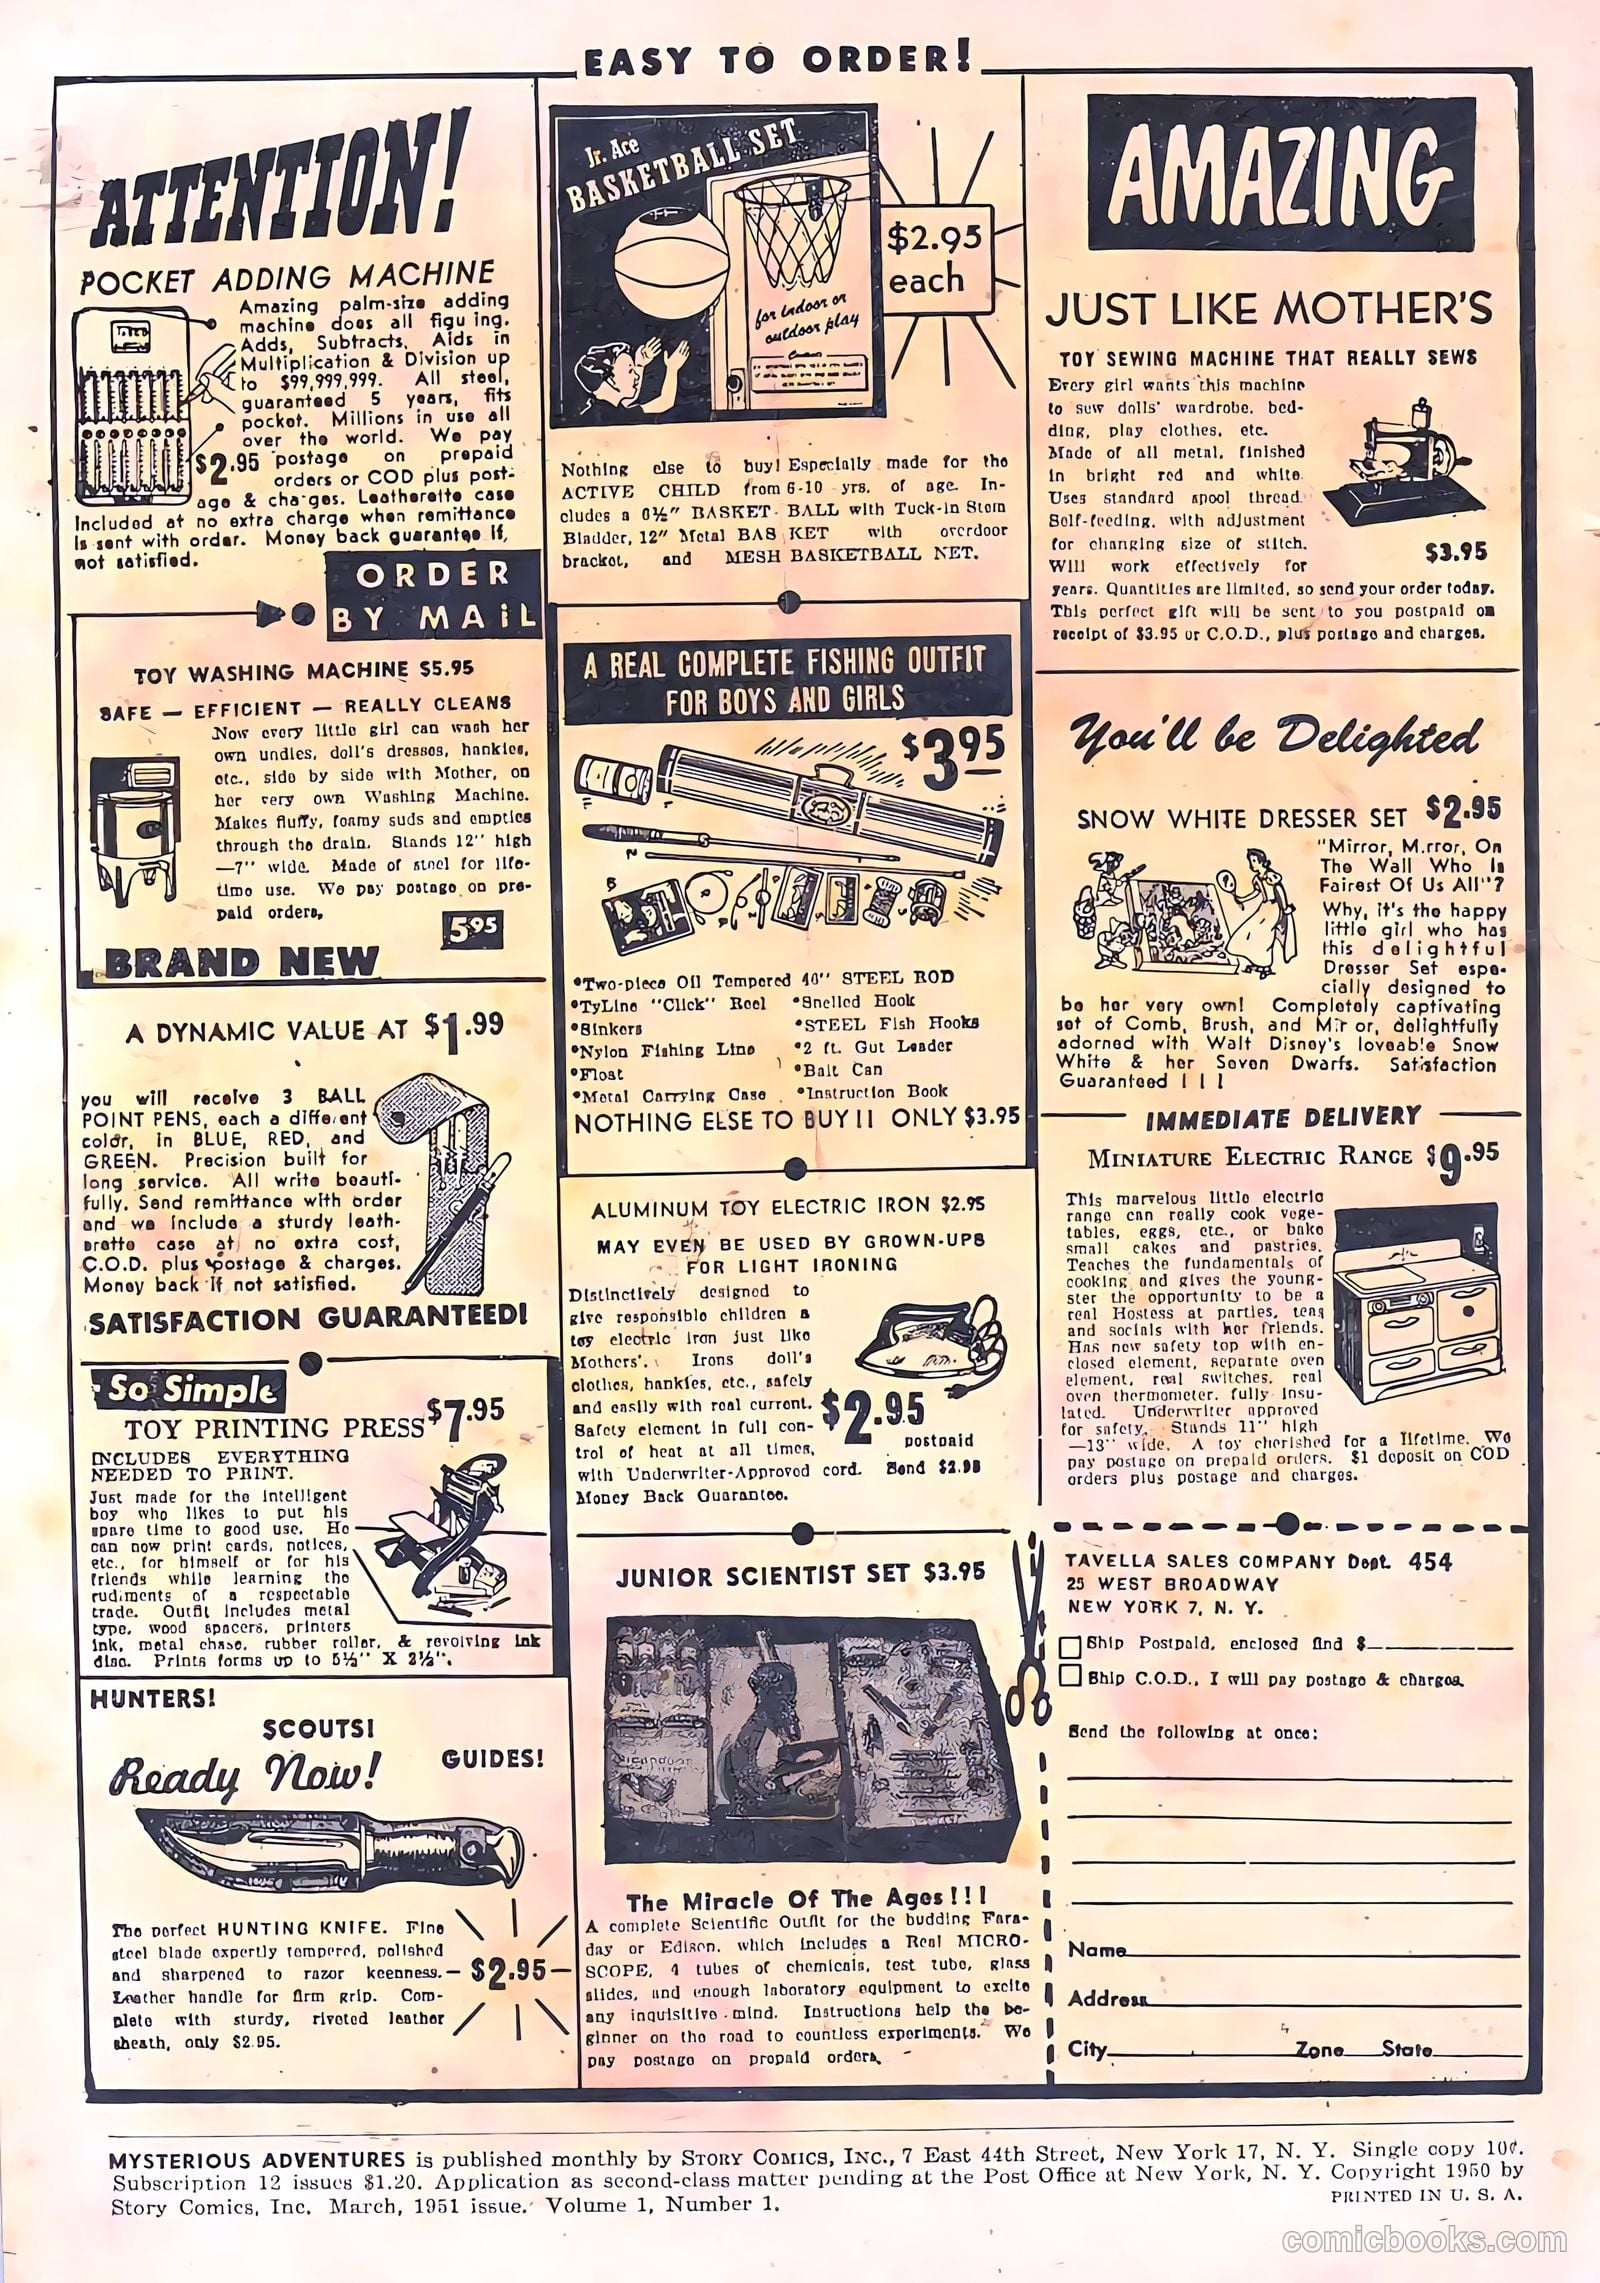 EASY TO ORDER!
ATTENTION!
POCKET ADDING MACHINE
Amazing palm-size adding
machine does all figu ing.
Adds, Subtracts, Aids in
Multiplication & Division up
to $99,999,999. All steel,
guaranteed 5 years, fits
pocket. Millions in use all
over the world. We pay
$2.95 postage on prepaid
orders or COD plus post-
age & cha ges. Leatherette case
Included at no extra charge when remittance
is sent with order. Money back guarantee if,
not satisfied.
ORDER
BY MAiL
TOY WASHING MACHINE $5.95
SAFE — EFFICIENT — REALLY CLEANS
Now every little girl can wash her
own undies, doll's dresses, hankies,
etc., side by side with Mother, on
her very own Washing Machine.
Makes fluffy, foamy suds and empties
through the drain. Stands 12" high
—7" wide. Made of steel for life-
time use. We pay postage on pre-
paid orders,
5.95
BRAND NEW
A DYNAMIC VALUE AT $1.99
you will receive 3 BALL
POINT PENS, each a different
color, in BLUE, RED, and
GREEN. Precision built for
long service. All write beauti-
fully. Send remittance with order
and we include a sturdy leath-
erette case at no extra cost,
C.O.D. plus postage & charges.
Money back if not satisfied.
SATISFACTION GUARANTEED!
So Simple
TOY PRINTING PRESS $7.95
INCLUDES EVERYTHING
NEEDED TO PRINT.
Just made for the intelligent
boy who likes to put his
spare time to good use. He
can now print cards, notices,
etc., for himself or for his
friends while learning the
rudiments of a respectable
trade. Outfit includes metal
type, wood spacers, printers
ink, metal chase, rubber roller, & revolving ink
disc. Prints forms up to 5½" X 2½".
HUNTERS!
SCOUTS!
GUIDES!
Ready Now!
The perfect HUNTING KNIFE. Fine
steel blade expertly tempered, polished
and sharpened to razor keenness.
Leather handle for firm grip. Com-
plete with sturdy, riveted leather
sheath, only $2.95.
$2.95
Jr. Ace
BASKETBALL SET
for indoor or
outdoor play
$2.95
each
Nothing else to buy! Especially made for the
ACTIVE CHILD from 6-10 yrs. of age. In-
cludes a 6½" BASKET- BALL with Tuck-in Stem
Bladder, 12" Metal BAS KET with overdoor
bracket, and MESH BASKETBALL NET.
A REAL COMPLETE FISHING OUTFIT
FOR BOYS AND GIRLS
$3.95
*Two-piece Oil Tempered 40" STEEL ROD
*TyLine "Click" Reel *Snelled Hook
*Sinkers *STEEL Fish Hooks
*Nylon Fishing Line *2 ft. Gut Leader
*Float *Bait Can
*Metal Carrying Case *Instruction Book
NOTHING ELSE TO BUY!! ONLY $3.95
ALUMINUM TOY ELECTRIC IRON $2.95
MAY EVEN BE USED BY GROWN-UPS
FOR LIGHT IRONING
Distinctively designed to
give responsible children a
toy electric iron just like
Mothers'. Irons doll's
clothes, hankies, etc., safely
and easily with real current.
Safety element in full con-
trol of heat at all times,
with Underwriter-Approved cord. Send $2.98
Money Back Guarantee.
$2.95
postpaid
JUNIOR SCIENTIST SET $3.95
The Miracle Of The Ages!!!
A complete Scientific Outfit for the budding Fara-
day or Edison, which includes a Real MICRO-
SCOPE, 4 tubes of chemicals, test tube, glass
slides, and enough laboratory equipment to excite
any inquisitive mind. Instructions help the be-
ginner on the road to countless experiments. We
pay postage on prepaid orders.
AMAZING
JUST LIKE MOTHER'S
TOY SEWING MACHINE THAT REALLY SEWS
Every girl wants this machine
to sew dolls' wardrobe, bed-
ding, play clothes, etc.
Made of all metal, finished
in bright red and white.
Uses standard spool thread.
Self-feeding, with adjustment
for changing size of stitch.
Will work effectively for
years. Quantities are limited, so send your order today.
This perfect gift will be sent to you postpaid on
receipt of $3.95 or C.O.D., plus postage and charges.
$3.95
You'll be Delighted
SNOW WHITE DRESSER SET $2.95
"Mirror, M.rror, On
The Wall Who Is
Fairest Of Us All"?
Why, it's the happy
little girl who has
this delightful
Dresser Set espe-
cially designed to
be her very own! Completely captivating
set of Comb, Brush, and Mir or, delightfully
adorned with Walt Disney's loveable Snow
White & her Seven Dwarfs. Satisfaction
Guaranteed ! ! !
IMMEDIATE DELIVERY
MINIATURE ELECTRIC RANGE $9.95
This marvelous little electric
range can really cook vege-
tables, eggs, etc., or bake
small cakes and pastries.
Teaches the fundamentals of
cooking and gives the young-
ster the opportunity to be a
real Hostess at parties, teas
and socials with her friends.
Has new safety top with en-
closed element, separate oven
element, real switches, real
oven thermometer, fully insu-
lated. Underwriter approved
for safety. Stands 11" high
—13" wide. A toy cherished for a lifetime. We
pay postage on prepaid orders. $1 deposit on COD
orders plus postage and charges.
TAVELLA SALES COMPANY Dept. 454
25 WEST BROADWAY
NEW YORK 7, N. Y.
Ship Postpaid, enclosed find $
Ship C.O.D., I will pay postage & charges.
Send the following at once:
Name
Address
City Zone State
MYSTERIOUS ADVENTURES is published monthly by STORY COMICS, INC., 7 East 44th Street, New York 17, N. Y. Single copy 10¢.
Subscription 12 issues $1.20. Application as second-class matter pending at the Post Office at New York, N. Y. Copyright 1950 by
Story Comics, Inc. March, 1951 issue. Volume 1, Number 1.
PRINTED IN U. S. A.
comicbooks.com